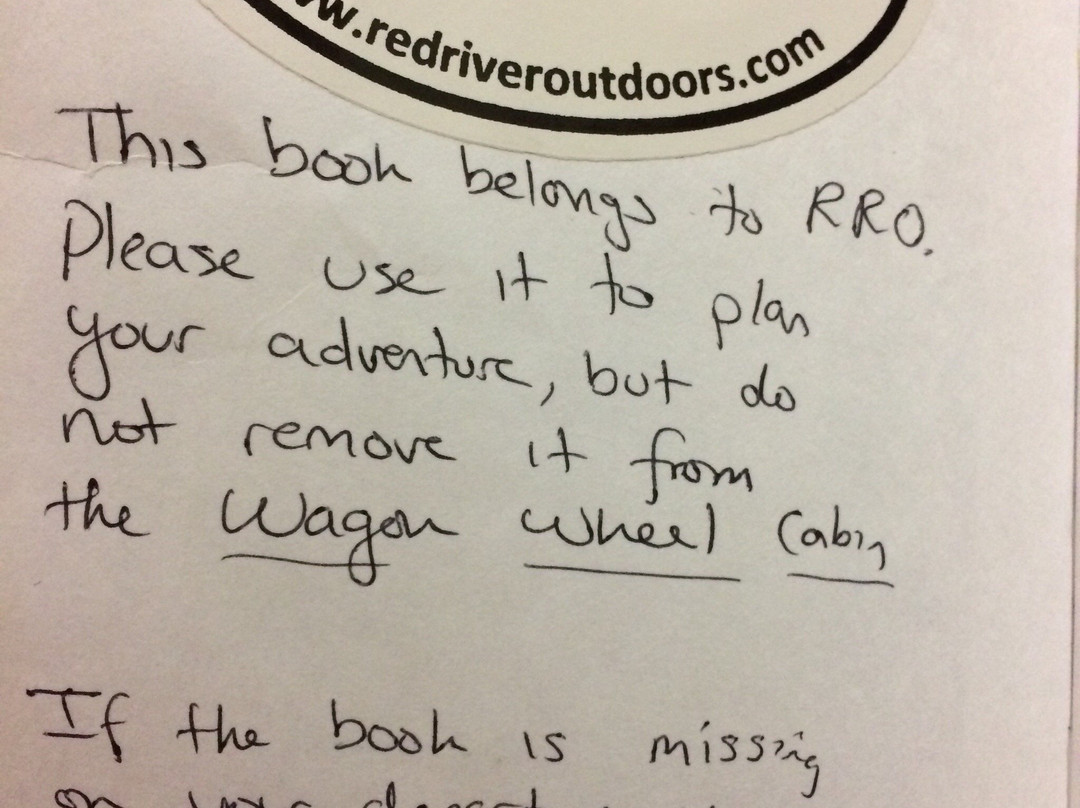 www.redriveroutdoors.com
This book belongs to RRO.
Please use it to plan
your adventure, but do
not remove it from
the Wagon Wheel Cabin
If the book is missing
on